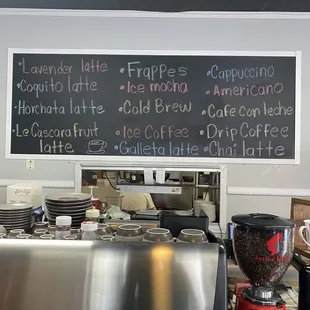 Lavender latte
Coquito latte
Horchata latte
Le Cascara fruit
latte
Frappes
Ice mocha
Cold Brew
Ice Coffee
Galleta latte
Cappuccino
Americano
Cafe con leche
Drip Coffee
Chai latte